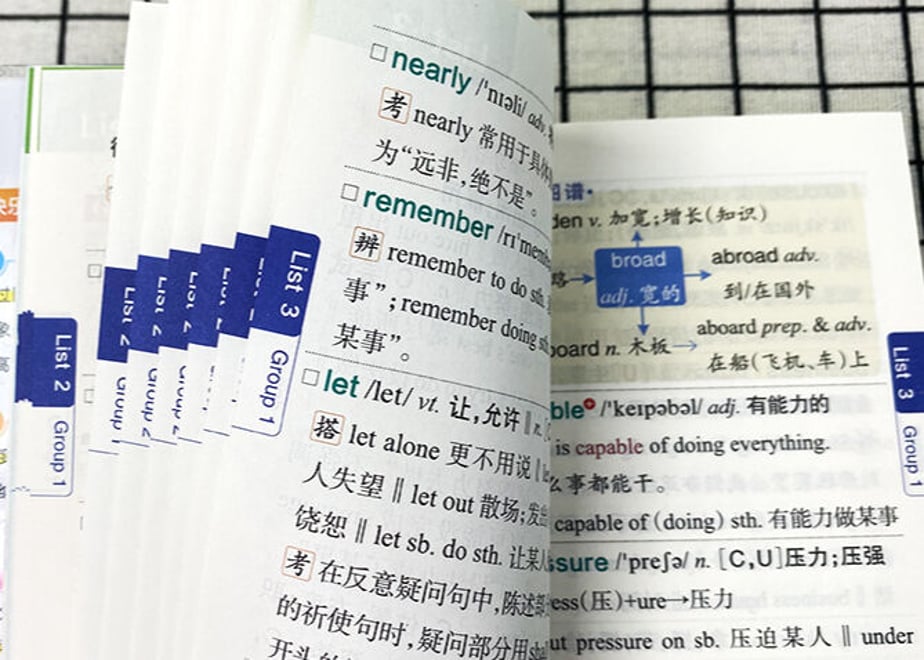 □ nearly /ˈnɪəli/ adv.
考 nearly 常用于具体
为“远非,绝不是”。
□ remember /rɪˈmem
辨 remember to do sth.
事”; remember doing
某事”。
□ let /let/ vt. 让,允许 ‖ n.
搭 let alone 更不用说 ‖
人失望 ‖ let out 散场;发出
饶恕 ‖ let sb. do sth. 让某人
考 在反意疑问句中,陈述部
的祈使句时,疑问部分用
开头的
List 3
Group 1
List 2
Group 1
谱·
den v. 加宽;增长(知识)
broad
adj. 宽的
abroad adv.
到/在国外
board n. 木板
aboard prep. & adv.
在船(飞机、车)上
ble /ˈkeɪpəbəl/ adj. 有能力的
is capable of doing everything.
么事都能干。
capable of (doing) sth. 有能力做某事
ssure /ˈpreʃə/ n. [C,U]压力;压强
ess(压)+ure→压力
ut pressure on sb. 压迫某人 ‖ under
List 3
Group 1